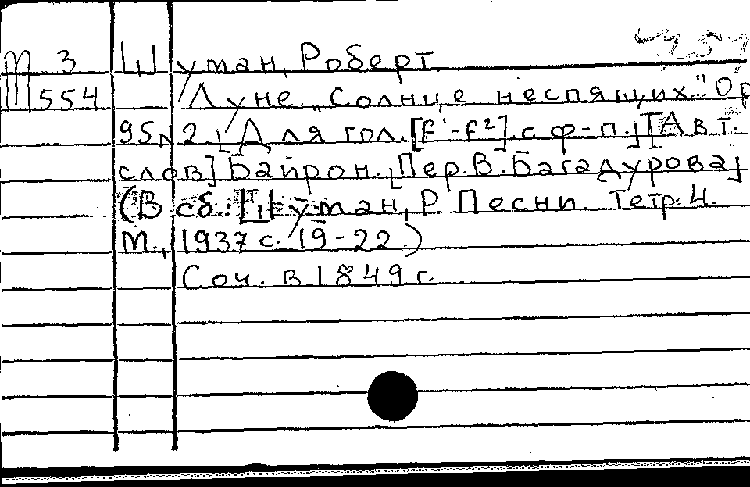 М 3 Шуман, Роберт
554 Луне „Солнце неспящих." Ор.
95 N 2. [Для гол. [f¹-f²] с ф-п.] [Авт.
слов] Байрон. [Пер. В. Багадурова]
(В сб.: Шуман, Р. Песни. Тетр. 4.
М., 1937 с. 19-22.)
Соч. в 1849 г.